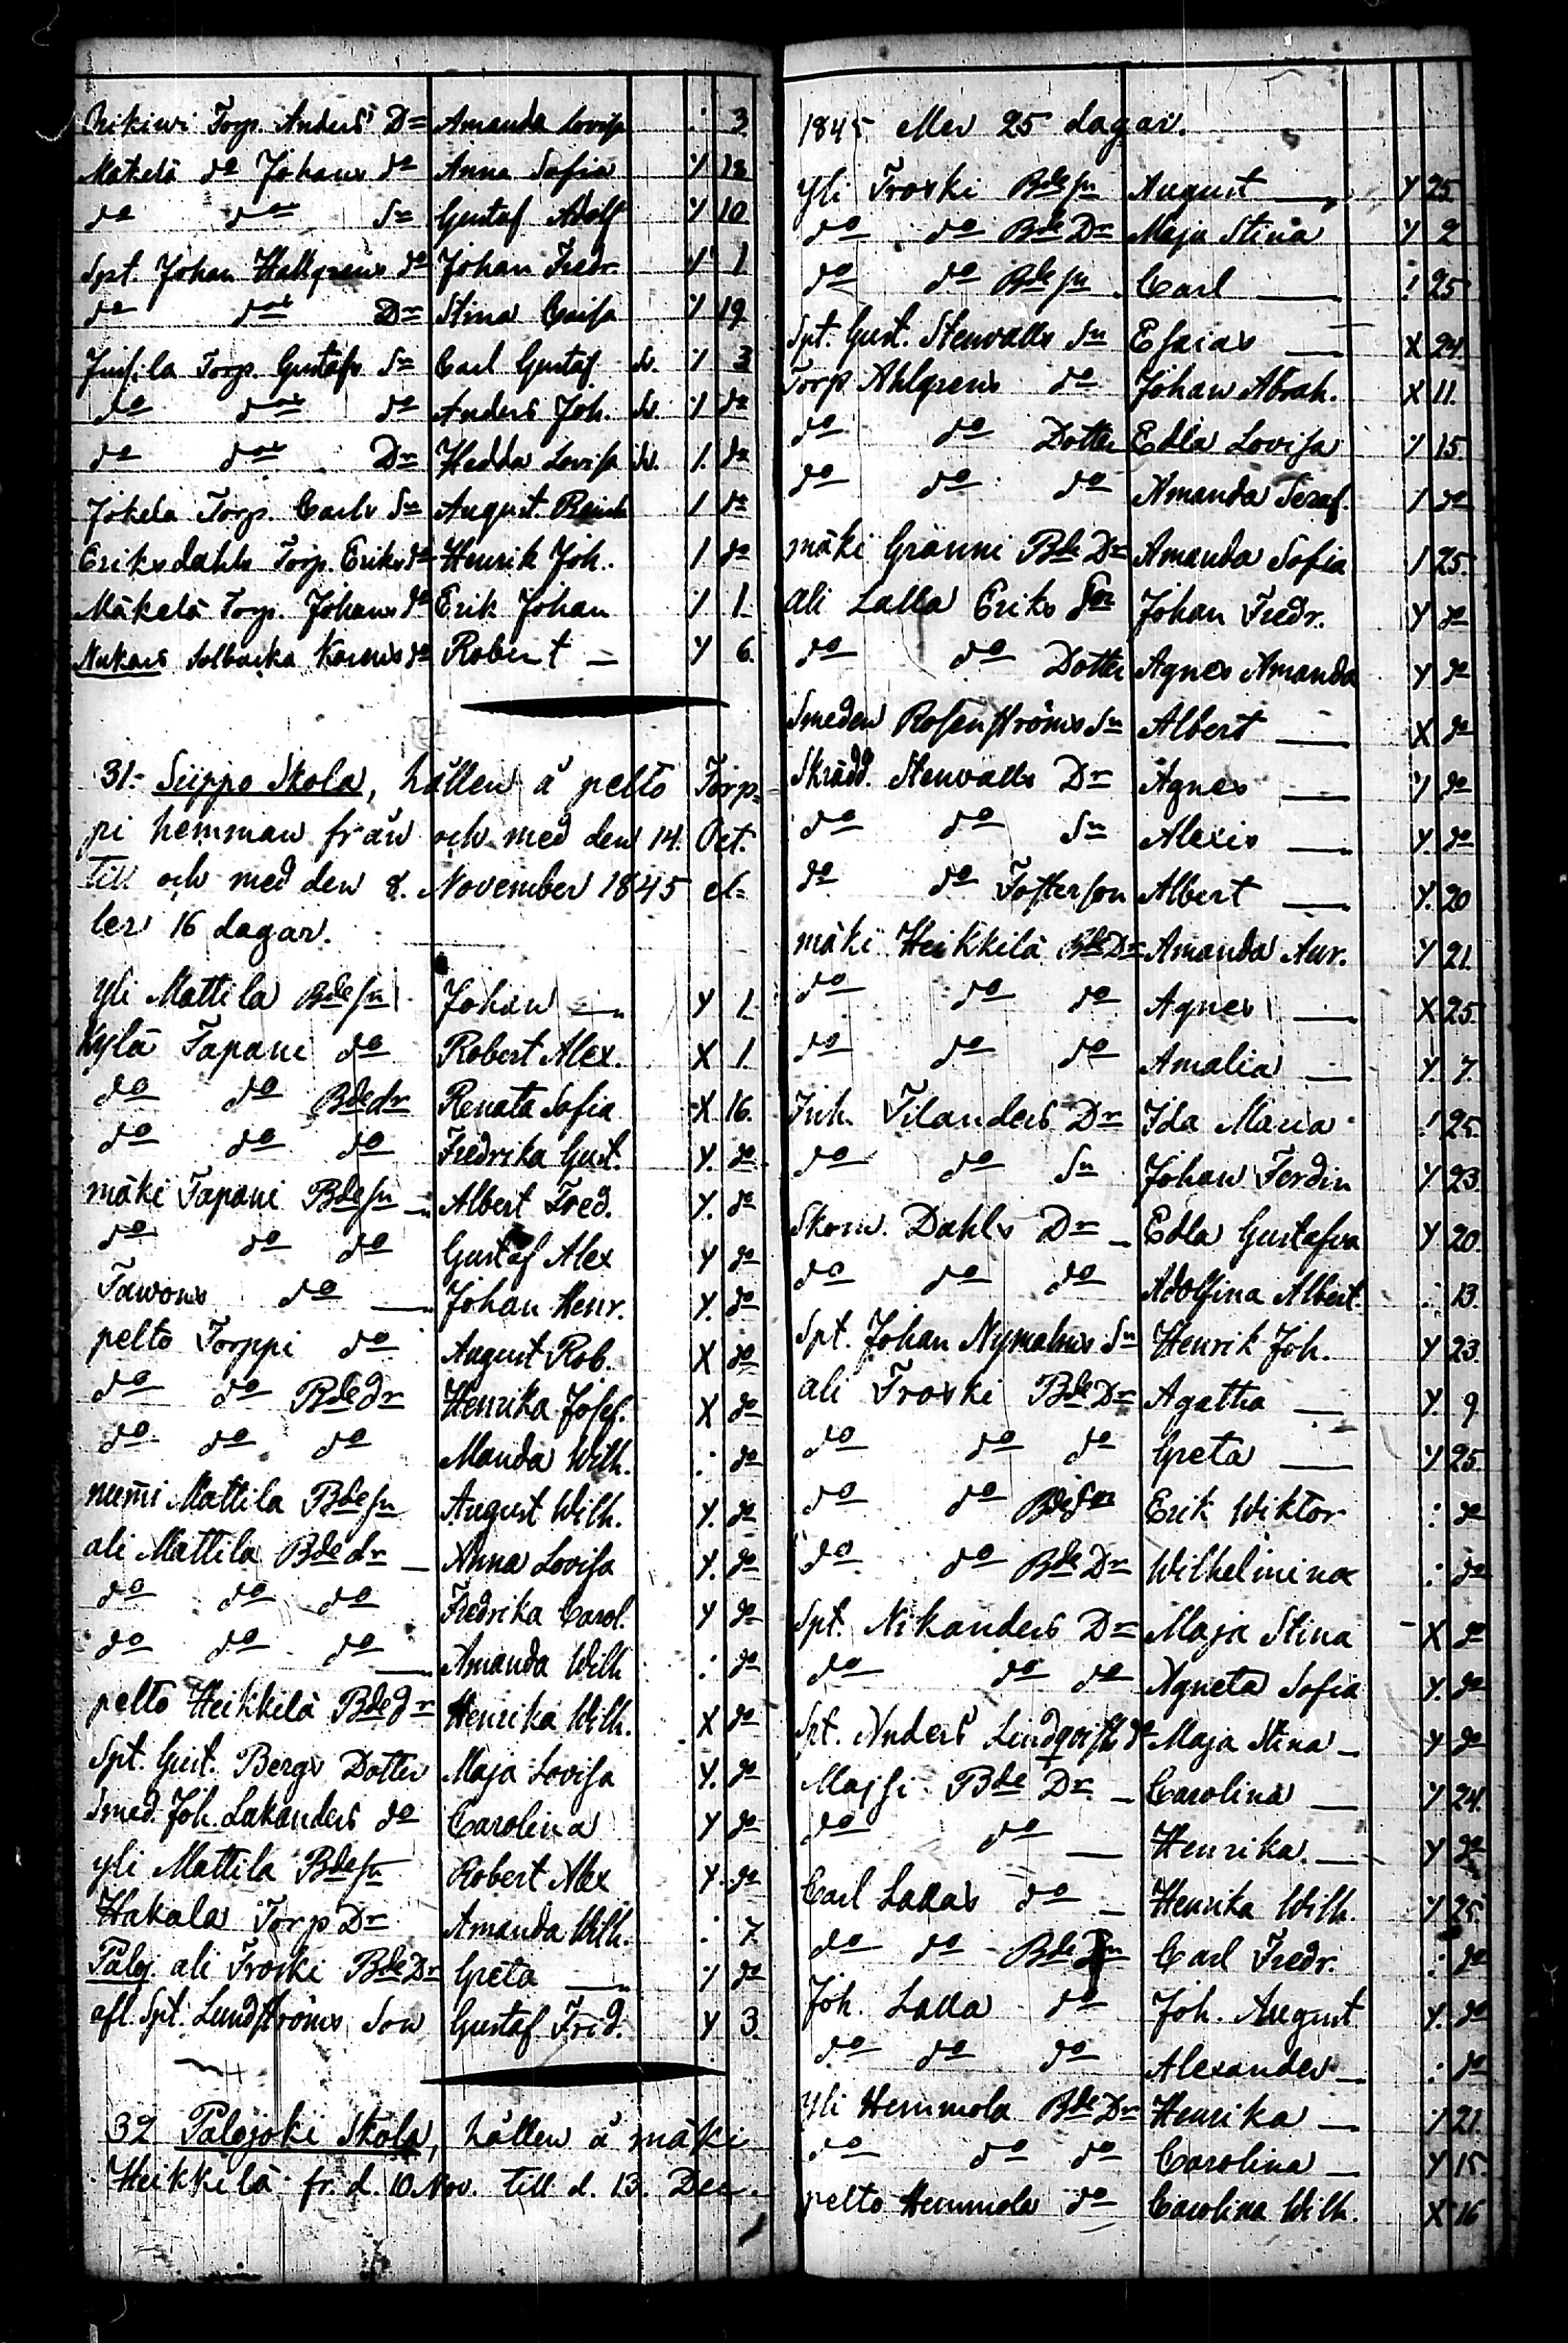 Torp. Anders Dr Amanda Lovisa : 3.
Mäkelä do Johans do Anna Sofia Y 12
do do Sn Gustaf Adolf Y 10
Spt. Johan Hallgrens do Johan Fredr. Y 1
do do Dr Stina Caisa Y 19
Torp. Gustafs Sn Carl Gustaf dv. Y 3
do do do Anders Joh. dv. Y do
do do Dr Hedda Lovisa dv. 1. do
Jokela Torp. Carls Sn August 1 do
Eriksdahls Torp. Eriks do Henrik Joh. 1 do
Mäkelä Torp. Johans do Erik Johan Y 1.
Nukars Solbacka do Robert — Y 6.
31. Siippo Skola, hållen å pelto Torp-
pi hemman från och med den 14. Oct.
till och med den 8. November 1845 el-
ler 16 dagar.
yli Mattila Bdesn Johan — Y 1.
Kylä Tapani do Robert Alex. X 1.
do do Bdedr Renata Sofia X 16.
do do do Fredrika Gust. Y. do
mäki Tapani Bdesn — Albert Fred. Y. do
do do do Gustaf Alex Y do
Tawons do — Johan Henr. Y. do
pelto Torppi do August Rob. X do
do do Bdedr Henrika Josef. X do
do do do Manda Wilh. : do
nummi Mattila Bdesn August Wilh. Y. do
ali Mattila Bdedr — Anna Lovisa Y. do
do do do Fredrika Carol. Y do
do do do — Amanda Wilh : do
pelto Heikkilä Bdedr Henrika Wilh. X do
Spt. Gust. Bergs Dotter Maja Lovisa Y. do
Smed. Joh. Lakanders do Carolina Y do
yli Mattila Bdesn Robert Alex Y. do
Hakala Torp Dr Amanda Wilh. : 7.
Paloj. ali Troski BdeDr Greta — Y do
afl. Spt. Lundströms Son Gustaf Frid. Y 3.
32 Palojoki Skola, hållen å mäki
Heikkilä fr. d. 10 Nov. till d. 13. Dec.
1845 eller 25 dagar.
Yli Troski Bdesn August — Y 25
do do BdeDr Maja Stina Y 2
do do Bdesn Carl — : 25
Spt. Gust. Stenvalls Sn Esaias — X 24.
Torp. Ahlgrens do Johan Abrah. X 11.
do do Dotter Edla Lovisa Y 15.
do do do Amanda Seraf. 1 do
mäki Gränni Bde Dr Amanda Sofia 1 25.
ali Lalla Eriks Sn Johan Fredr. Y do
do do Dotter Agnes Amanda Y. do
Smeden Rosenströms Sn Albert — X do
Skrädd. Stenvalls Dr Agnes — Y do
do do Sn Alexis — Y. do
do do Fosterson Albert — Y. 20
mäki Heikkilä BdeDr Amanda Aur. Y 21.
do do do Agnes — X 25.
do do do Amalia — Y. 7.
Inh. Tilanders Dr Ida Maria : 25.
do do Sn Johan Ferdin Y 23.
Skom. Dahls Dr — Edla Gustafva Y 20.
do do do Adolfina Albert. : 13.
Spt. Johan Nymalms Sn Henrik Joh. Y 23.
ali Troski BdeDr Agatha — Y. 9.
do do do Greta — Y 25.
do do Bdesn Erik Wiktor : do
do do BdeDr Wilhelmina : do
Spt. Nikanders Dr Maja Stina X do
do do do Agneta Sofia Y. do
Spt. Anders Lindqvists do Maja Stina — Y do
Majsi Bde Dr — Carolina — Y 24.
do do — Henrika — Y do
Carl Lallas do — Henrika Wilh. Y 25.
do do Bde Sn Carl Fredr. : do
Joh. Lalla do Joh. August Y. do
do do do Alexander — : do
Yli Hemmola BdeDr Henrika — Y 21.
do do do Carolina — Y 15.
pelto Hemmola do Carolina Wilh. X 16